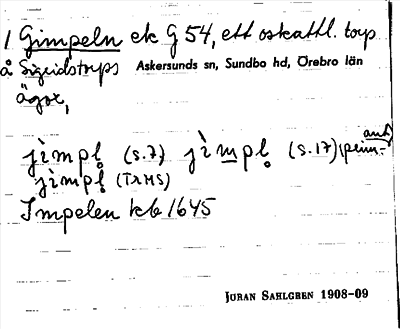 1 Gimpeln ek G 54, ett oskattl. torp
å Sigridstorps Askersunds sn, Sundbo hd, Örebro län
ägor,
jìmpl̥ (S.7) jìmpl̥ (S.17)
jìmpl̥ (TRHS)
Impelen kb 1645
JÖRAN SAHLGREN 1908-09